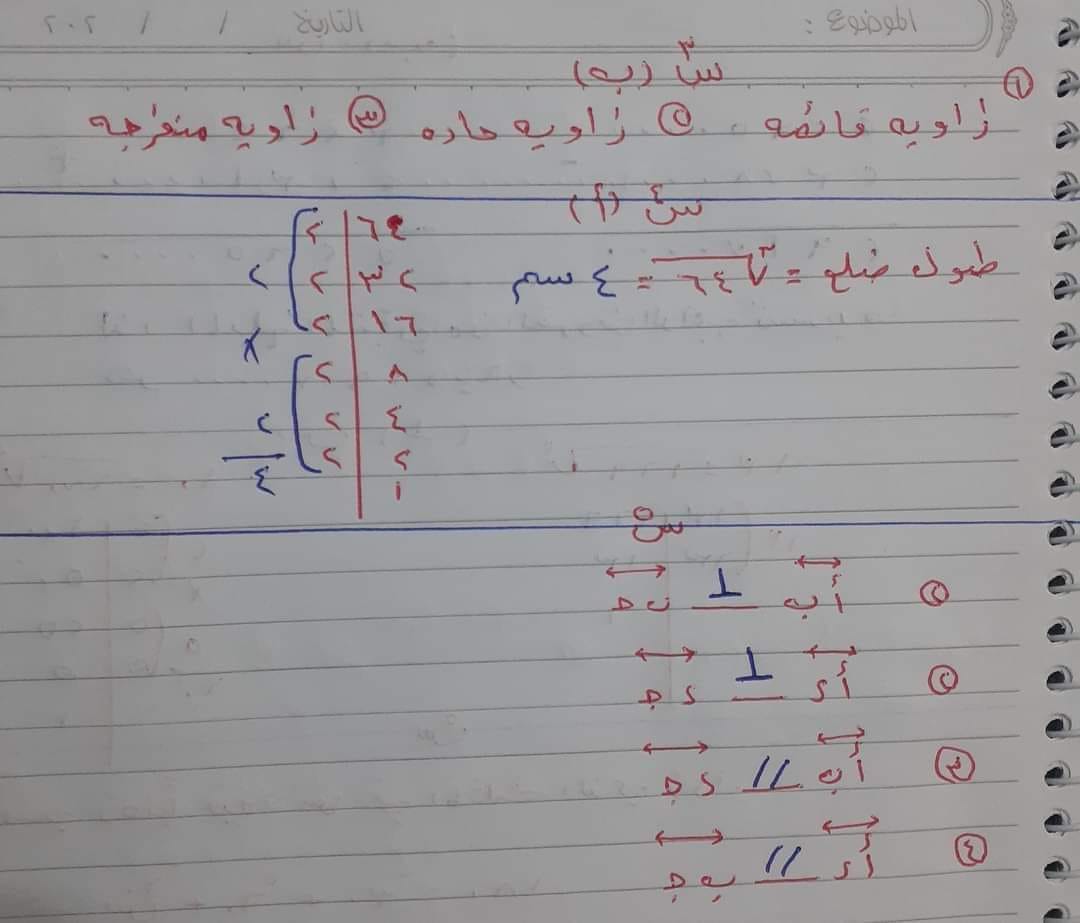 الموضوع : التاريخ / / ٢٠٢
س٣ (ب)
① زاويه قائمه ② زاويه حاده ③ زاويه منفرجه
س٤ (أ)
طول ضلع = ∛٦٤ = ٤ سم
٦٤ | ٢
٣٢ | ٢ ٢
١٦ | ٢
×
٨ | ٢
٤ | ٢ ٢
٢ | ٢
١ ٤
س٥
① أب ⊥ ب ج
② أد ⊥ د ج
③ أب // د ج
④ أد // ب ج